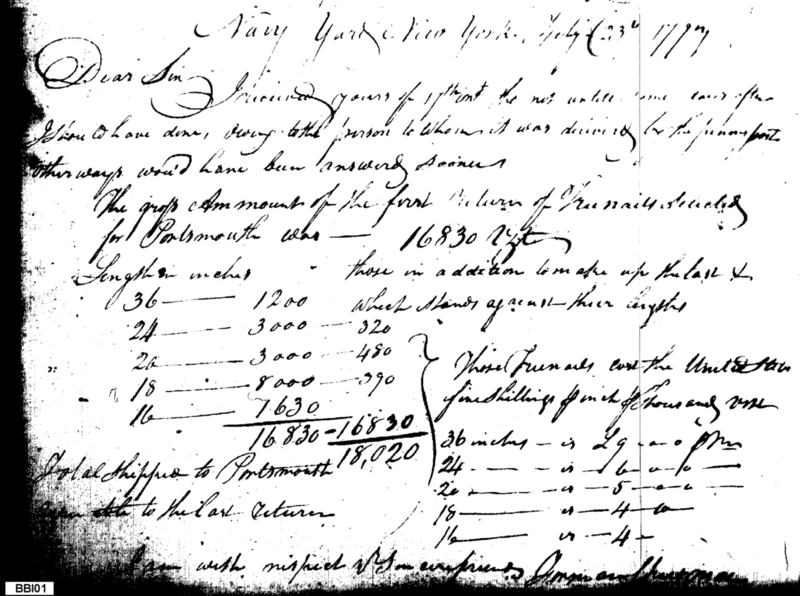 Navy Yard New York, Feby 23d 1797
Dear Sir
I received yours of 17th inst the not untill some days after
I should have done, owing to the person to whom it was delivered
otherways would have been answered sooner
The gross Ammount of the first Return of Trunails
for Portsmouth was — 16830 Vizt
Lengths in inches those in addition to make up the last &
36 —— 1200 which stands against their lengths
24 —— 3000 — 320
20 —— 3000 — 480
18 —— 8000 — 390
16 —— 1630
16830 — 16830
18,020
These Trunails cost the United States
five shillings inch Thousand
36 inches — is £9 — 0 — 0
24 — is — 6 — 0 — 0
20 — is — 5 — 0 — 0
18 — is — 4
16 — is — 4
Total shipped to Portsmouth
to the last return
I am with respect
BBI01